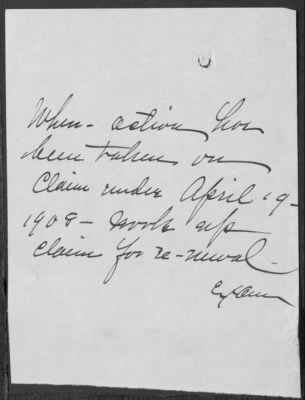 When - action has
been taken on
Claim under April 19-
1908 - work up
claim for re-newal -
Exmr